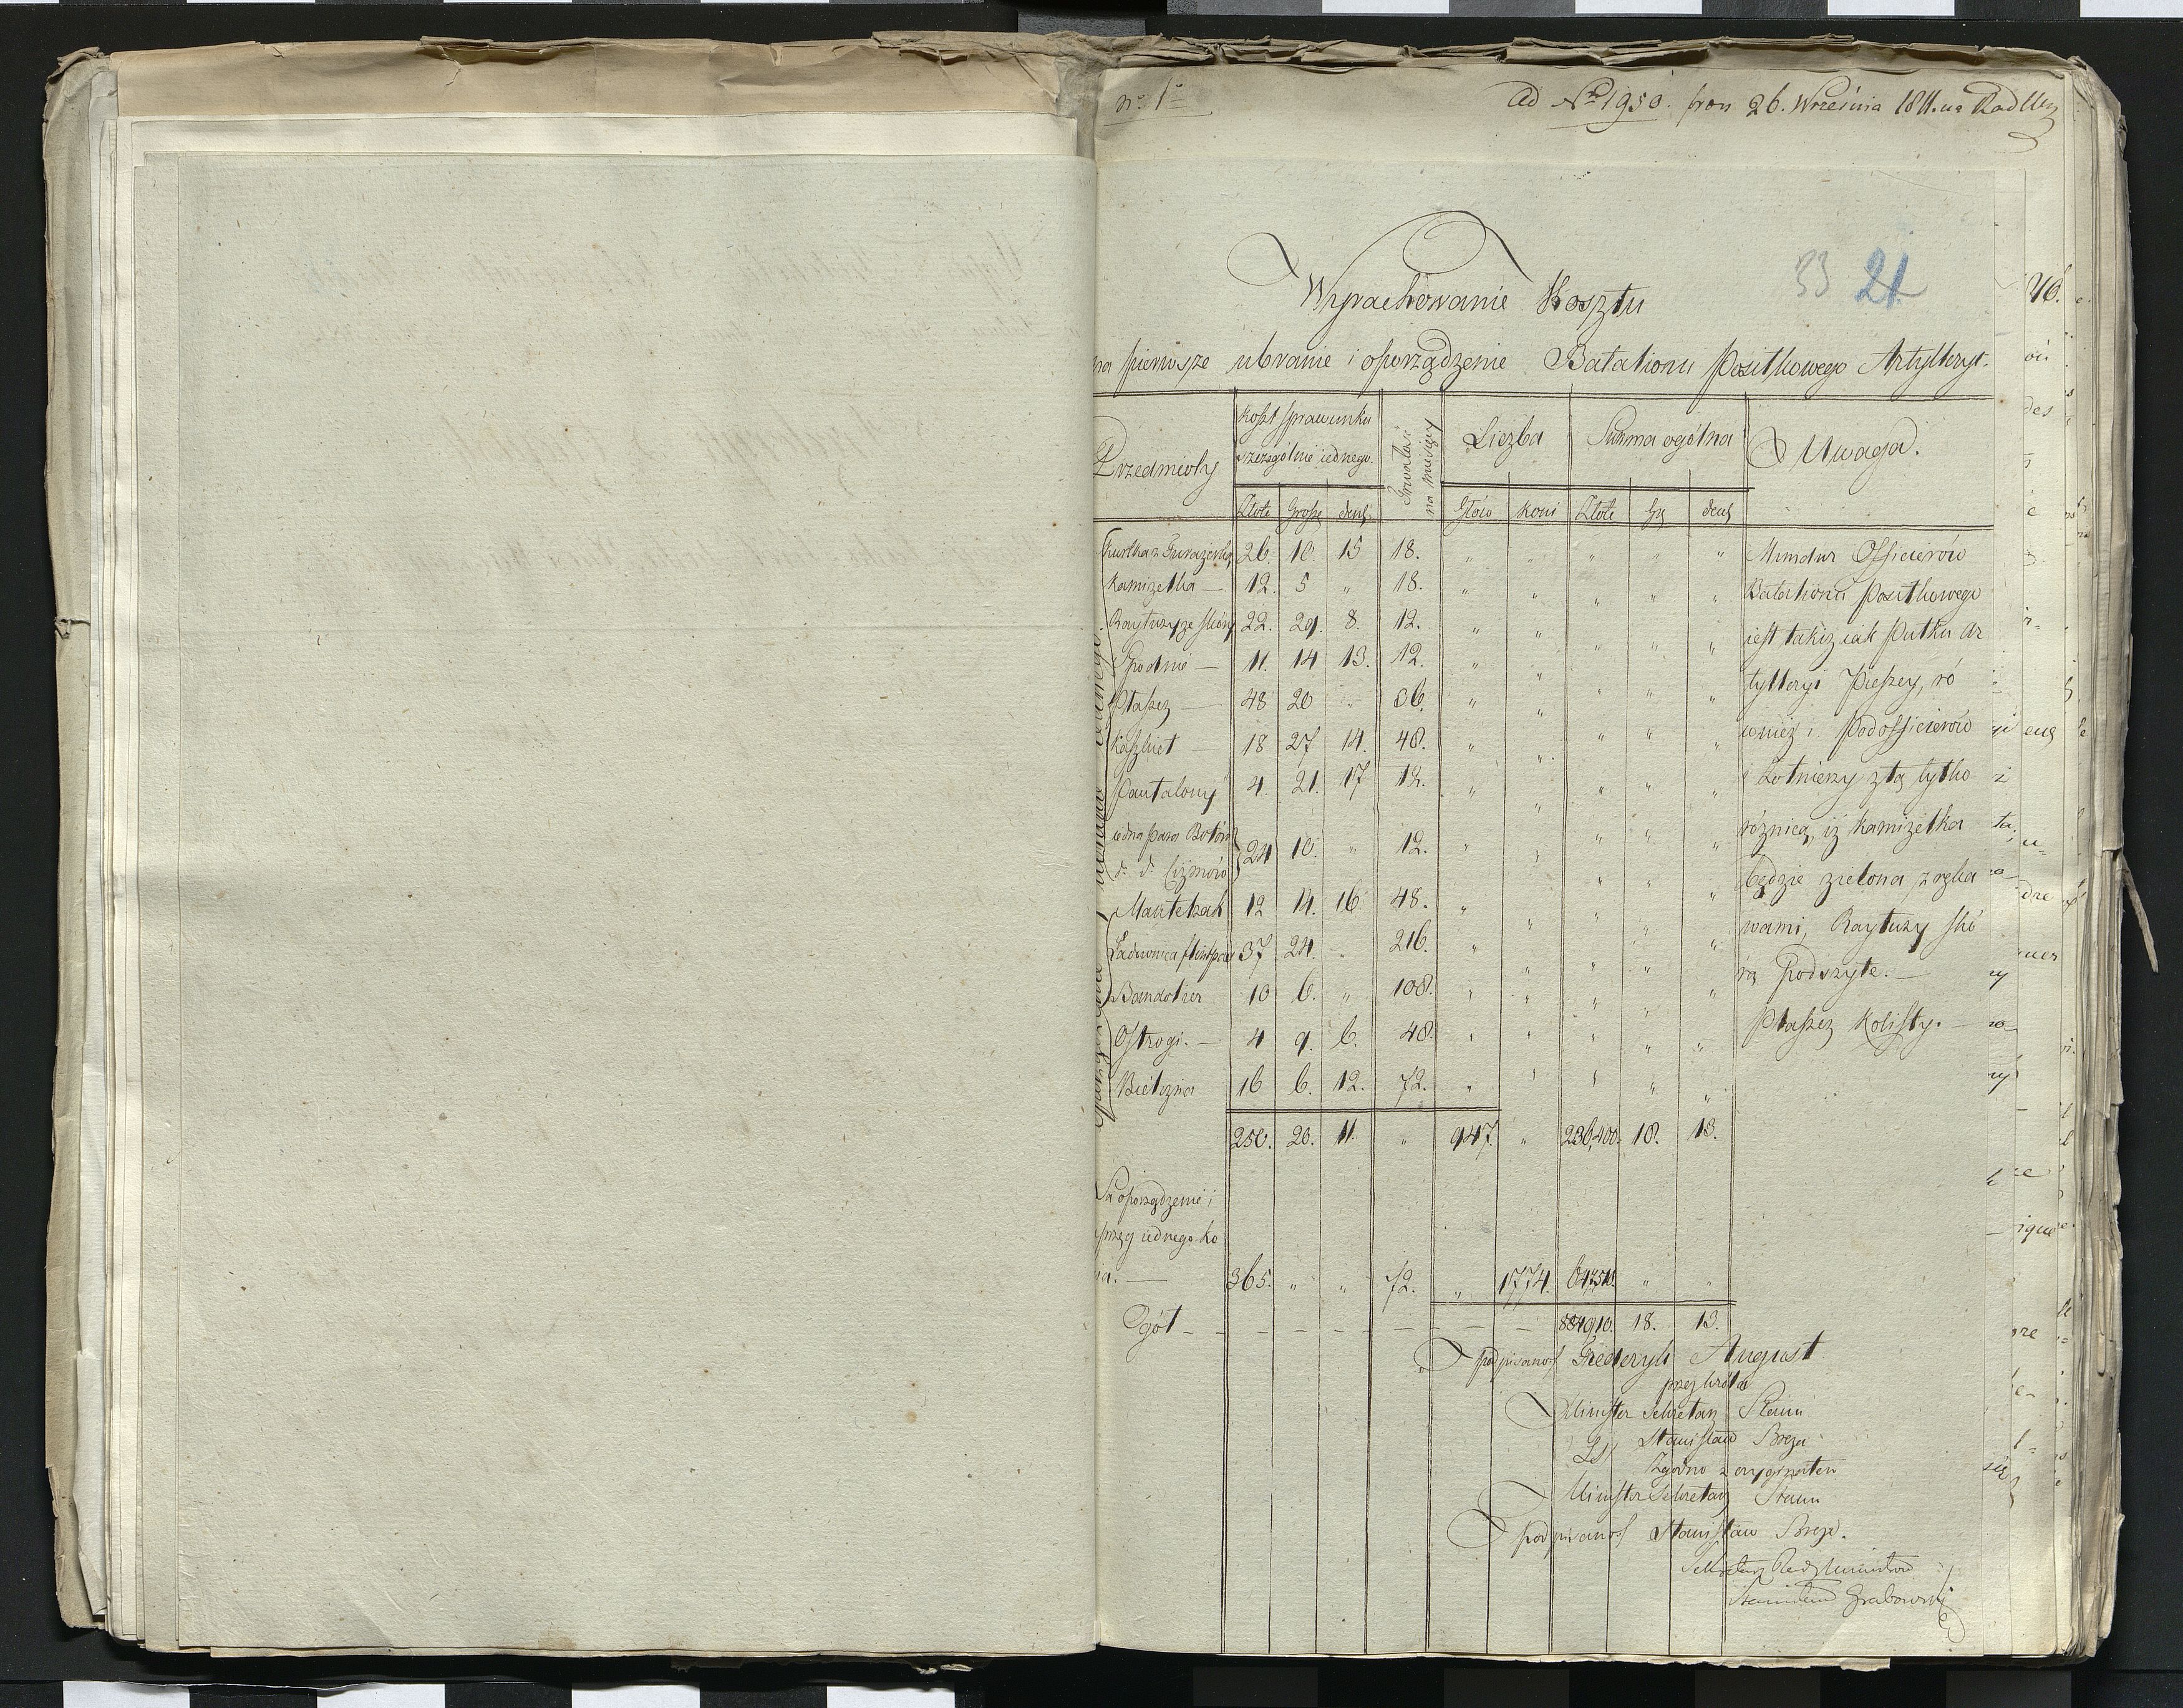 No 1o
Ad No 1950. praes 26. Września 1811. na Rad Mn
33 21
Wyrachowanie Kosztu
na pierwsze ubranie i oporządzenie Batalionu Positkowego Artylleryi.
Przedmioty | Koszt sprawunku szczegolnie iednego | Trwałość na miesięcy | Liczba | Summa ogólna | Uwaga.
Złote | Grosze | den | Głów | Koni | Złote | Gr | den
Kurtka z Furażerką | 26. | 10. | 15 | 18. | " | " | " | " | " | Mundur Officierów
Kamizelka — | 12. | 5 | " | 18. | " | " | " | " | " | Batalionu Positkowego
Raytuzy ze skóry | 22. | 29. | 8. | 12. | " | " | " | " | " | iest takiż iak Pułku Ar
Spodnie — | 11. | 14 | 13. | 12. | " | " | " | " | " | tylleryi Pieszey, ró
Płaszcz — | 48 | 20 | " | 36. | " | " | " | " | " | wnież i Podofficierów
Kaszkiet — | 18 | 27 | 14. | 48. | " | " | " | " | " | i Żołnierzy z tą tylko
Pantalony | 4. | 21. | 17 | 12. | " | " | " | " | " | różnicą, iż kamizelka
iedna para Botów
d. d. Ciżmów | 24 | 10. | " | 12. | " | " | " | " | " | będzie zielona z ręka
Mantelzak | 12 | 14. | 16 | 48. | " | " | " | " | " | wami, Raytuzy skó
Ładownica | 37 | 24. | " | 216. | " | " | " | " | " | rą Podszyte. —
Bandolier | 10 | 6. | " | 108. | " | " | " | " | "
Ostrogi. — | 4 | 9. | 6. | 48. | " | " | " | " | " | Płaszcz Kolisty. —
Bielizna | 16 | 6. | 12. | 72. | " | " | " | " | "
250. | 20. | 11. | " | 947. | " | 236,400. | 18. | 13.
Na oporządzenie i
sprzęg iednego ko
nia. — | 365. | " | " | 72. | " | 1774. | 647,510. | " | "
Ogół | 883,910. | 18. | 13.
podpisano / Fryderyk August
przez Króla
Minister Sekretarz Stanu
Stanisław Breza
Zgodno z oryginałem
Minister Sekretarz Stanu
podpisano / Stanisław Breza.
Sekretarz Rady Ministrów
Stanisław Grabowski